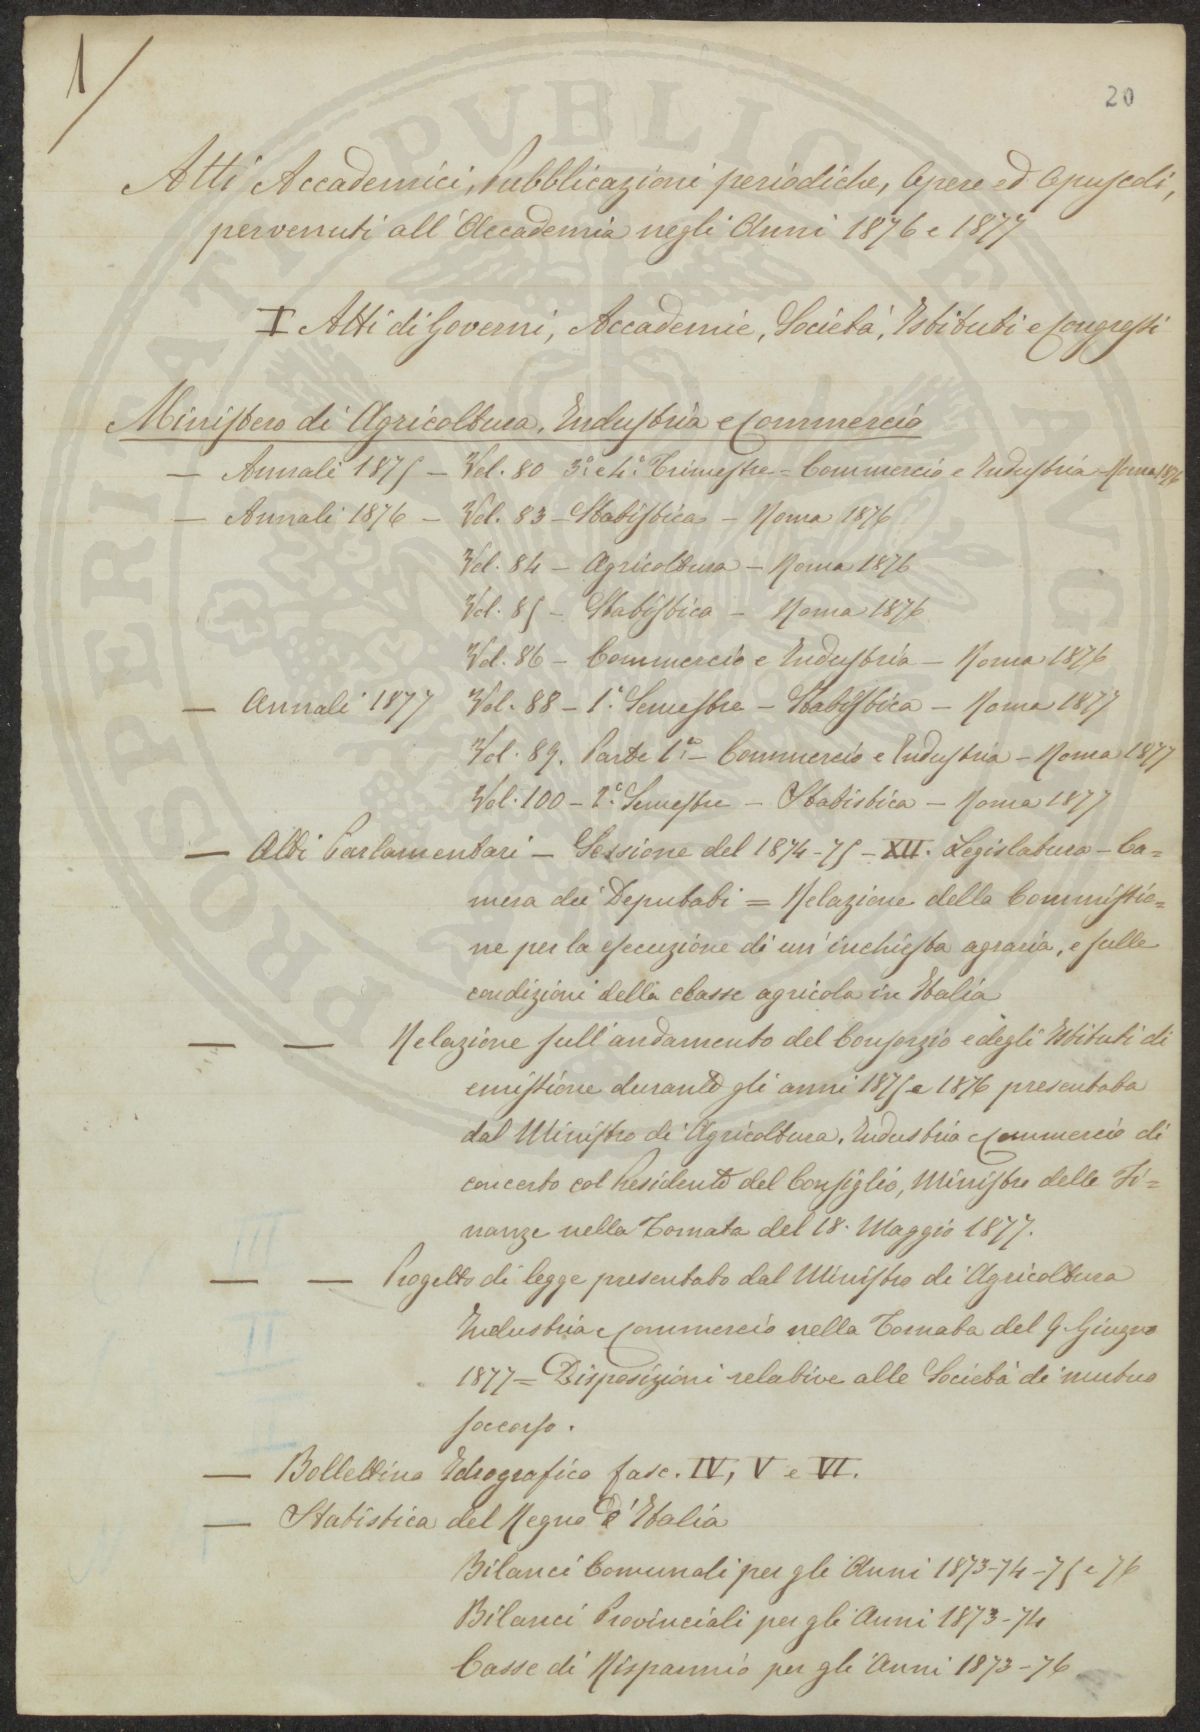 1/
20
Atti Accademici, Pubblicazioni periodiche, Opere ed Opuscoli,
pervenuti all'Accademia negli Anni 1876 e 1877
I Atti di Governi, Accademie, Società, Istituti e Congressi
Ministero di Agricoltura, Industria e Commercio
— Annali 1875 — Vol. 80 3.° e 4.° Trimestre = Commercio e Industria - Roma 1876
— Annali 1876 — Vol. 83 — Statistica — Roma 1876
Vol. 84 — Agricoltura — Roma 1876
Vol. 85 — Statistica — Roma 1876
Vol. 86 — Commercio e Industria — Roma 1876
— Annali 1877 Vol. 88 — 1.° Semestre — Statistica — Roma 1877
Vol. 89. Parte 1.a — Commercio e Industria — Roma 1877
Vol. 100 — 2.° Semestre — Statistica — Roma 1877
— Atti Parlamentari — Sessione del 1874-75 — XII. Legislatura — Ca=
mera dei Deputati = Relazione della Commissio=
ne per la esecuzione di un'inchiesta agraria, e sulle
condizioni della classe agricola in Italia
— — Relazione sull'andamento del Consorzio e degli Istituti di
emissione durante gli anni 1875 e 1876 presentata
dal Ministro di Agricoltura, Industria e Commercio di
concerto col Presidente del Consiglio, Ministro delle Fi=
nanze nella Tornata del 18. Maggio 1877.
— — Progetto di legge presentato dal Ministro di Agricoltura
Industria e Commercio nella Tornata del 9. Giugno
1877 = Disposizioni relative alle Società di mutuo
soccorso.
— Bollettino Idrografico fasc. IV, V e VI.
— Statistica del Regno d'Italia
Bilanci Comunali per gli Anni 1873-74-75 e 76
Bilanci Provinciali per gli Anni 1873-74
Casse di Risparmio per gli Anni 1873-76
PROSPERITATI PVBLICAE